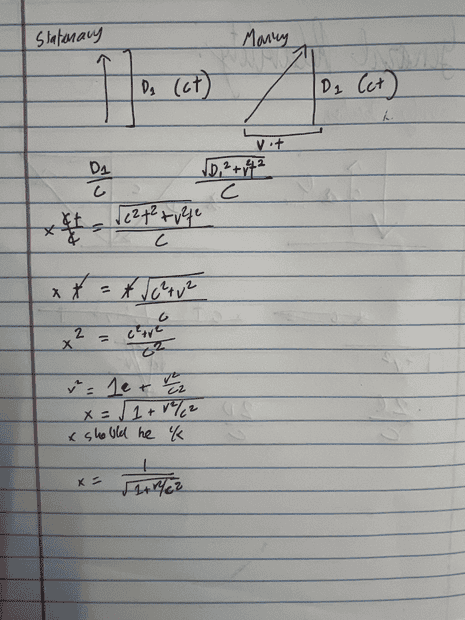 Stationary Moving
D₁ (ct) D₁ (ct)
v·t
D₁/c √(D₁² + v²t²)/c
x ct/c = √(c²t² + v²t²)/c
x t = t √(c² + v²)/c
x² = (c² + v²)/c²
= 1 + v²/c²
x = √(1 + v²/c²)
x should be
x = 1/√(1 + v²/c²)